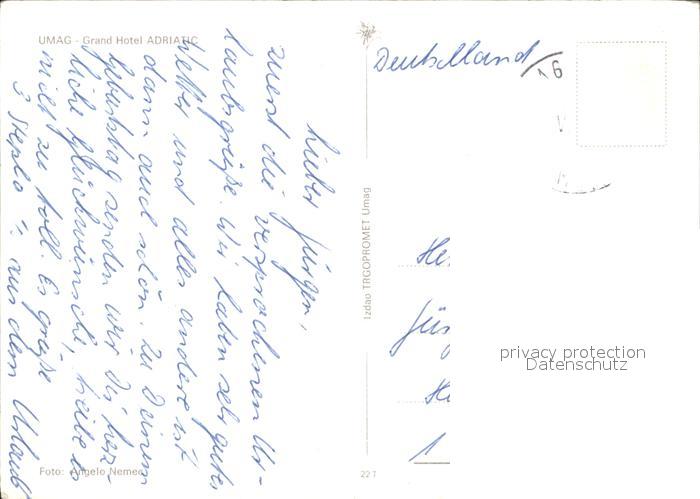 UMAG - Grand Hotel ADRIATIC
Lieber Jürgen,
zuerst die versprochenen Ur-
laubsgrüße. Wir haben sehr gutes
Wetter und alles andere ist
dann auch schön. Zu Deinem
Geburtstag senden wir Dir herz-
liche Glückwünsche, treibe es
nicht zu toll. Es grüßt
3 aus dem Urlaub
Foto: Angelo Nemec
Izdao TRGOPROMET Umag
22 7
Deutschland
16
He
Jür
He
1
privacy protection
Datenschutz